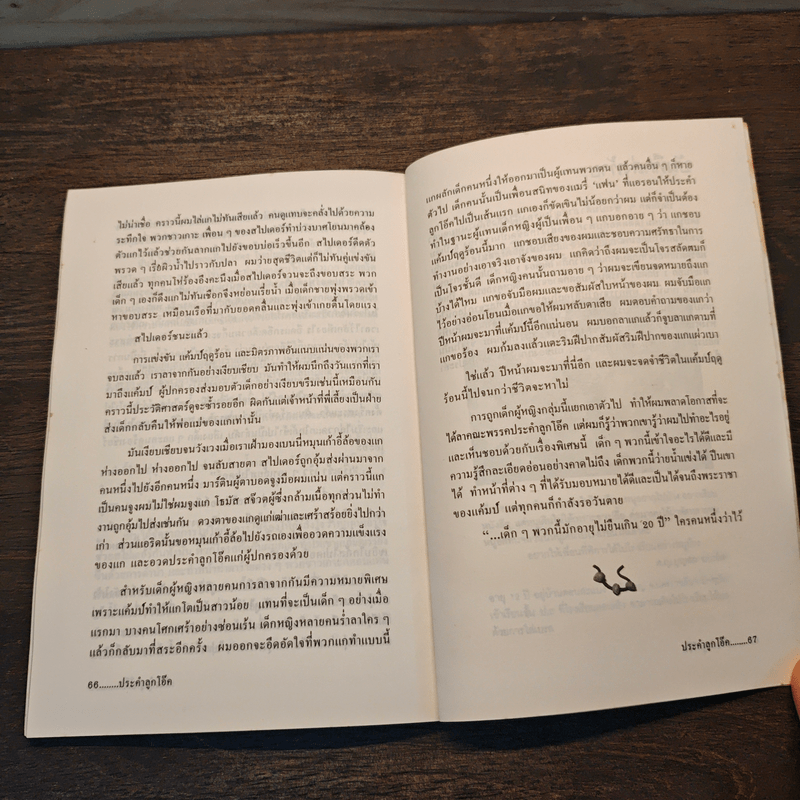 ไม่น่าเชื่อ คราวนี้ผมไล่แกไม่ทันเสียแล้ว คนดูแทบจะคลั่งไปด้วยความ
ระทึกใจ พวกชาวเกาะ เพื่อน ๆ ของสไปเดอร์ทำบ่วงบาศโยนมาคล้อง
ตัวแกไว้แล้วช่วยกันลากแกไปยังขอบบ่อเร็วขึ้นอีก สไปเดอร์ดีดตัว
พรวด ๆ เรี่ยผิวน้ำไปราวกับปลา ผมว่ายสุดชีวิตแต่ก็ไม่ทันคู่แข่งขัน
เสียแล้ว ทุกคนโห่ร้องอึงคะนึงเมื่อสไปเดอร์จวนจะถึงขอบสระ พวก
เด็ก ๆ เองก็ดึงแกไม่ทันเชือกจึงหย่อนเรี่ยน้ำ เมื่อเด็กชายพุ่งพรวดเข้า
หาขอบสระ เหมือนเรือที่มากับยอดคลื่นและพุ่งเข้าเกยตื้นโดยแรง
สไปเดอร์ชนะแล้ว
การแข่งขัน แค้มป์ฤดูร้อน และมิตรภาพอันแนบแน่นของพวกเรา
จบลงแล้ว เราลาจากกันอย่างเงียบเชียบ มันทำให้ผมนึกถึงวันแรกที่เรา
มาถึงแค้มป์ ผู้ปกครองส่งมอบตัวเด็กอย่างเงียบขรึมเช่นนี้เหมือนกัน
คราวนี้ประวัติศาสตร์ดูจะซ้ำรอยอีก ผิดกันแต่เจ้าหน้าที่พี่เลี้ยงเป็นฝ่าย
ส่งเด็กกลับคืนให้พ่อแม่ของแกเท่านั้น
มันเงียบเชียบจนวังเวงเมื่อเราเฝ้ามองเบนนี่หมุนเก้าอี้ล้อของแก
ห่างออกไป ห่างออกไป จนลับสายตา สไปเดอร์ถูกอุ้มส่งผ่านมาจาก
คนหนึ่งไปยังอีกคนหนึ่ง มาร์ตินผู้ตาบอดจูงมือผมแน่น แต่คราวนี้แก
เป็นคนจูงผมไม่ใช่ผมจูงแก โธมัส สจ๊วตผู้ซึ่งกล้ามเนื้อทุกส่วนไม่ทำ
งานถูกอุ้มไปส่งเช่นกัน ดวงตาของแกดูแก่เฒ่าและเศร้าสร้อยยิ่งไปกว่า
เก่า ส่วนแอริดนั้นขอหมุนเก้าอี้ล้อไปยังรถเองเพื่ออวดความแข็งแรง
ของแก และอวดประคำลูกโอ๊คแก่ผู้ปกครองด้วย
สำหรับเด็กผู้หญิงหลายคนการลาจากกันมีความหมายพิเศษ
เพราะแค้มป์ทำให้แกโตเป็นสาวน้อย แทนที่จะเป็นเด็ก ๆ อย่างเมื่อ
แรกมา บางคนโศกเศร้าอย่างซ่อนเร้น เด็กหญิงหลายคนร่ำลาใคร ๆ
แล้วก็กลับมาที่สระอีกครั้ง ผมออกจะอึดอัดใจที่พวกแกทำแบบนี้
66........ประคำลูกโอ๊ค
แกผลักเด็กคนหนึ่งให้ออกมาเป็นผู้แทนพวกตน แล้วคนอื่น ๆ ก็หาย
ตัวไป เด็กคนนั้นเป็นเพื่อนสนิทของแมรี่ 'แฟน' ที่แอรอนให้ประคำ
ลูกโอ๊คไปเป็นเส้นแรก แกเองก็ขัดเขินไม่น้อยกว่าผม แต่ก็จำเป็นต้อง
ทำในฐานะผู้แทนเด็กหญิงผู้เป็นเพื่อน ๆ แกบอกอาย ๆ ว่า แกชอบ
แค้มป์ฤดูร้อนนี้มาก แกชอบเสียงของผมและชอบความศรัทธาในการ
ทำงานอย่างเอาจริงเอาจังของผม แกคิดว่าถึงผมจะเป็นโจรสลัดผมก็
เป็นโจรชั้นดี เด็กหญิงคนนั้นถามอาย ๆ ว่าผมจะเขียนจดหมายถึงแก
บ้างได้ไหม แกขอจับมือผมและขอสัมผัสใบหน้าของผม ผมจับมือแก
ไว้อย่างอ่อนโยนเมื่อแกขอให้ผมหลับตาเสีย ผมตอบคำถามของแกว่า
ปีหน้าผมจะมาที่แค้มป์นี้อีกแน่นอน ผมบอกลาแกแล้วก็จูบลาแกตามที่
แกขอร้อง ผมก้มลงแล้วแตะริมฝีปากสัมผัสริมฝีปากของแกแผ่วเบา
ใช่แล้ว ปีหน้าผมจะมาที่นี่อีก และผมจะจดจำชีวิตในแค้มป์ฤดู
ร้อนนี้ไปจนกว่าชีวิตจะหาไม่
การถูกเด็กผู้หญิงกลุ่มนี้แยกเอาตัวไป ทำให้ผมพลาดโอกาสที่จะ
ได้ลาคณะพรรคประคำลูกโอ๊ค แต่ผมก็รู้ว่าพวกเขารู้ว่าผมไปทำอะไรอยู่
และเห็นชอบด้วยกับเรื่องพิเศษนี้ เด็ก ๆ พวกนี้เข้าใจอะไรได้ดีและมี
ความรู้สึกละเอียดอ่อนอย่างคาดไม่ถึง เด็กพวกนี้ว่ายน้ำแข่งได้ ปีนเขา
ได้ ทำหน้าที่ต่าง ๆ ที่ได้รับมอบหมายได้ดีและเป็นได้จนถึงพระราชา
ของแค้มป์ แต่ทุกคนก็กำลังรอวันตาย
“...เด็ก ๆ พวกนี้มักอายุไม่ยืนเกิน 20 ปี” ใครคนหนึ่งว่าไว้
ประคำลูกโอ๊ค........67